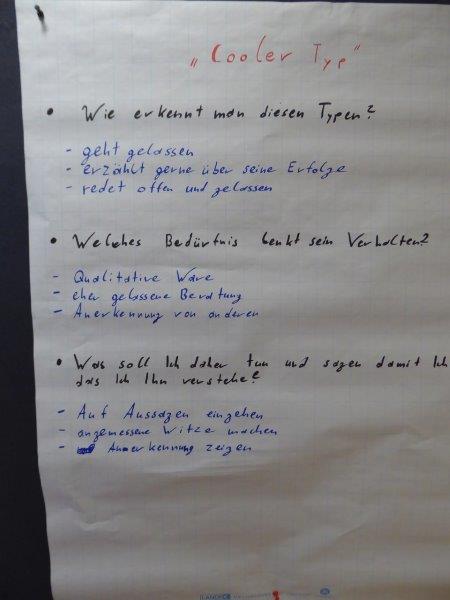 "Cooler Typ"
• Wie erkennt man diesen Typen?
- geht gelassen
- erzählt gerne über seine Erfolge
- redet offen und gelassen
• Welches Bedürfnis lenkt sein Verhalten?
- Qualitative Ware
- eher gelassene Beratung
- Anerkennung von anderen
• Was soll Ich daher tun und sagen damit Ich
das Ich Ihn verstehe?
- Auf Aussagen eingehen
- angemessene Witze machen
- Anerkennung zeigen
LANDRÉ